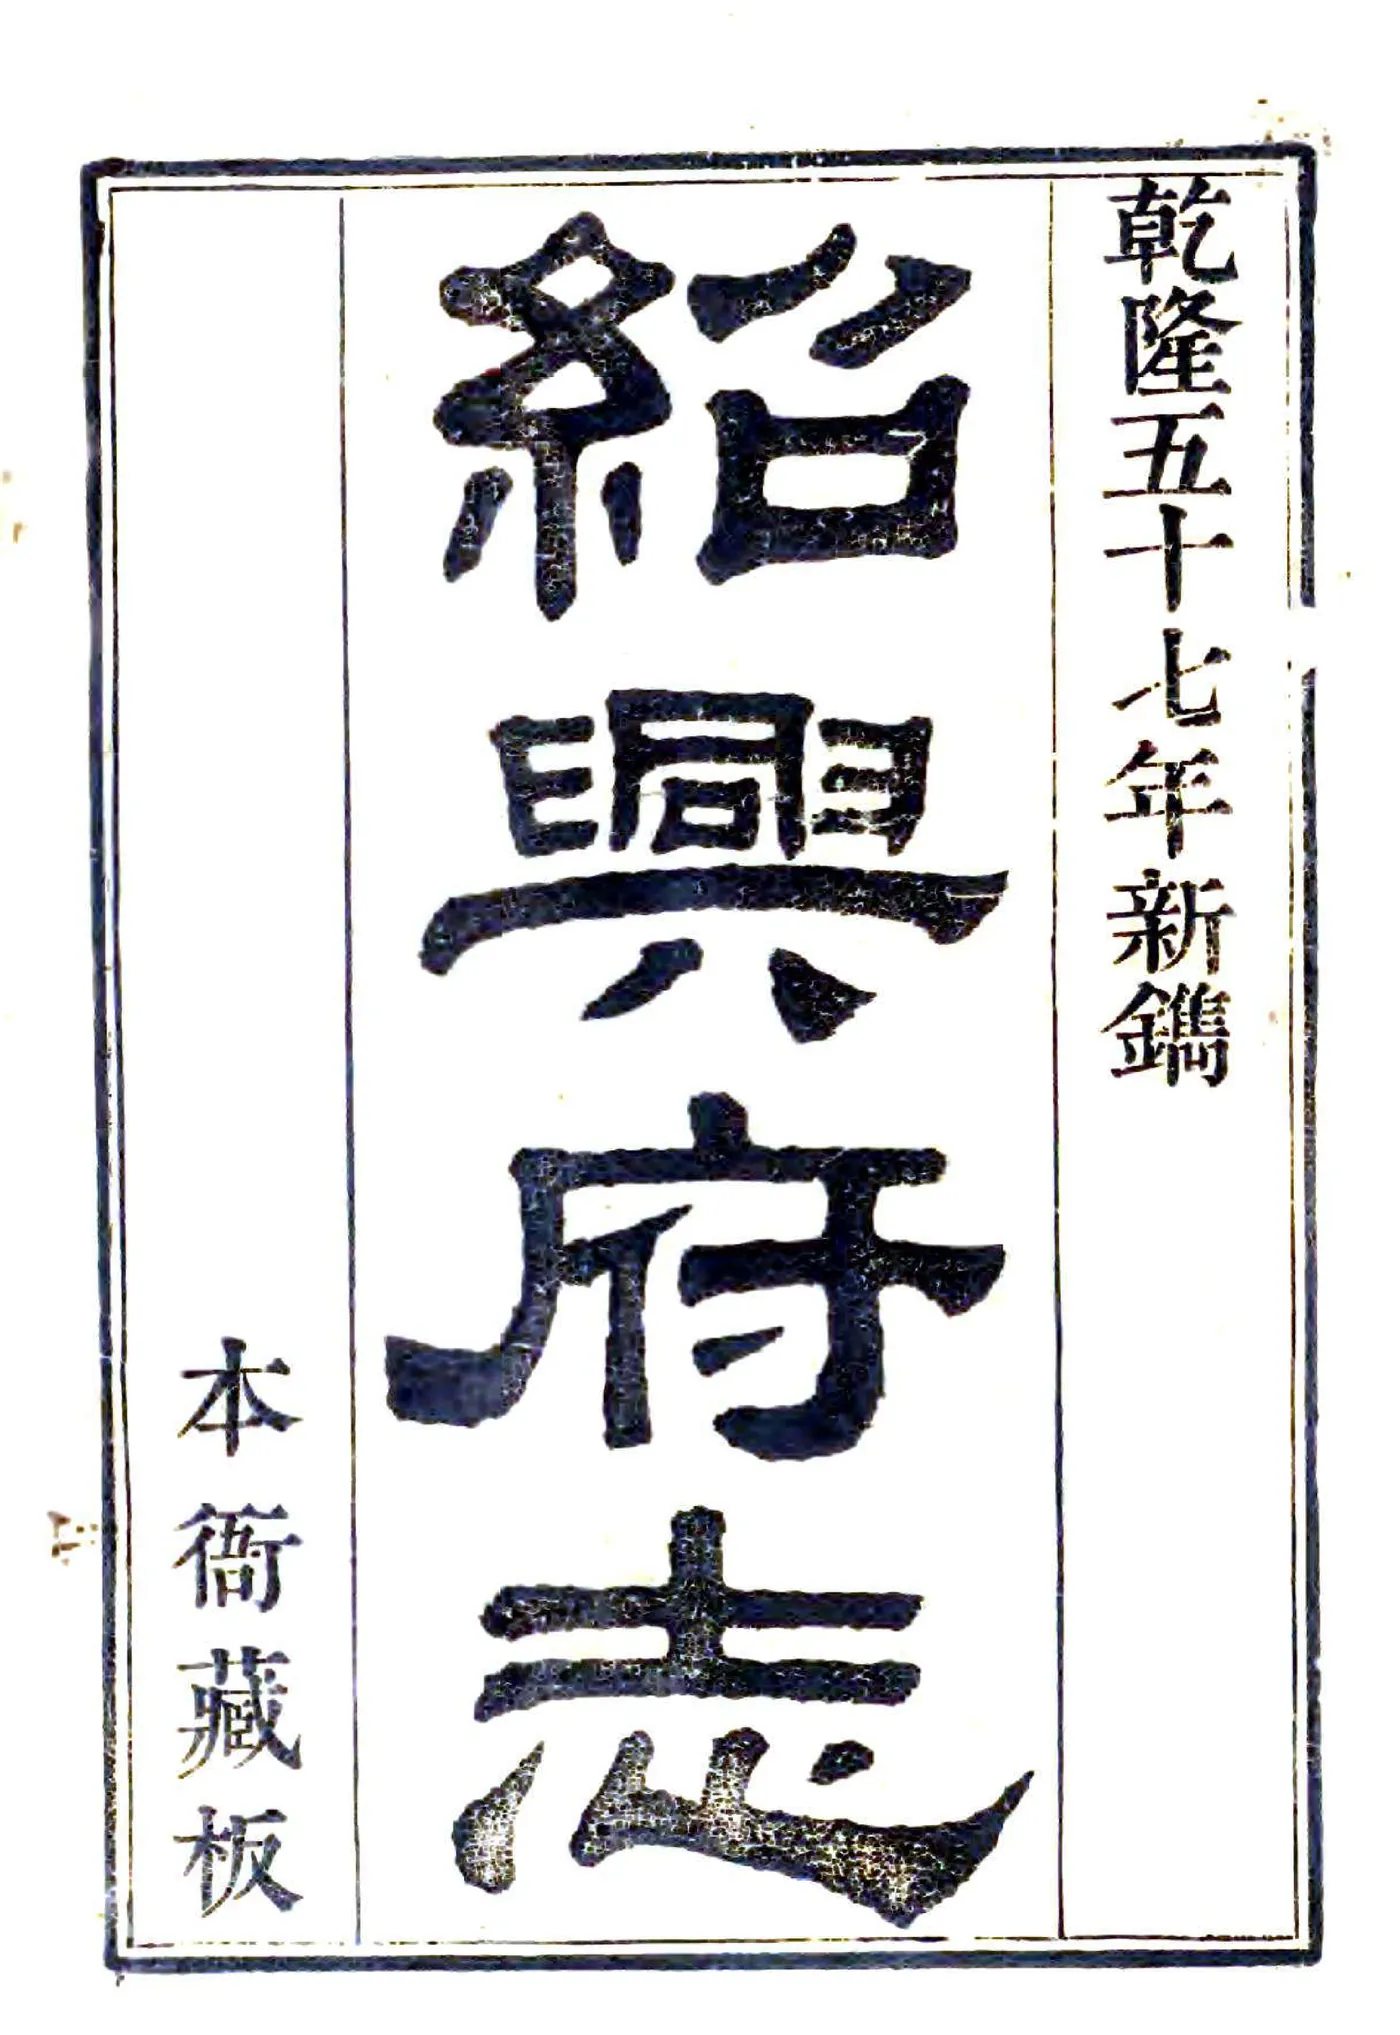 乾隆五十七年新鐫
紹興府志
本衙藏板